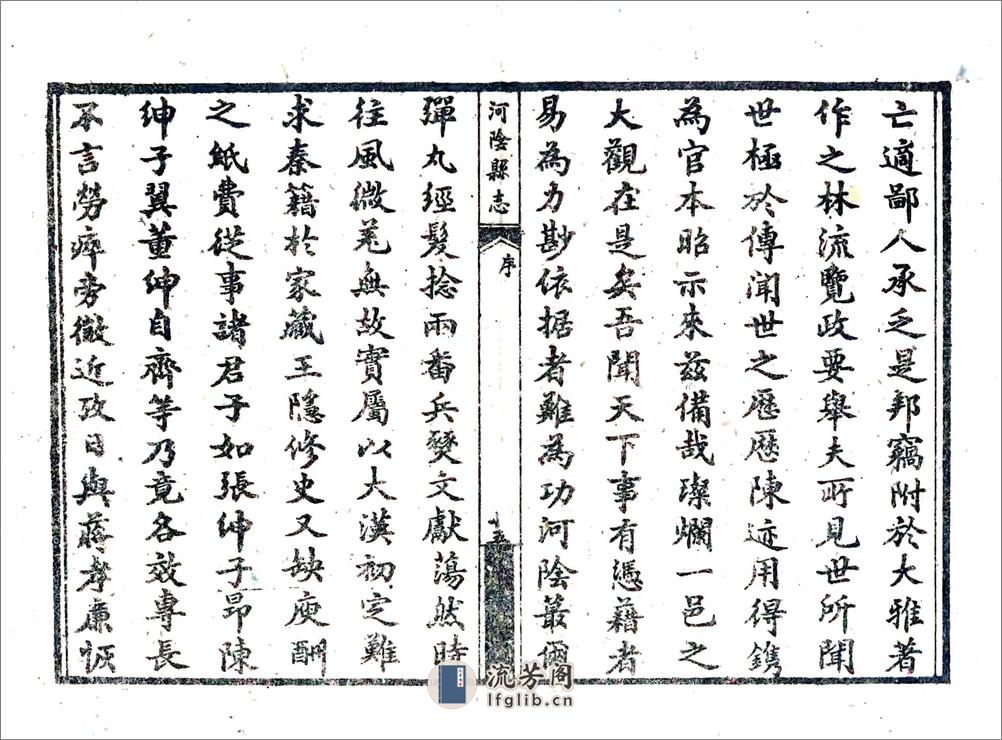 亡適鄙人承乏是邦竊附於大雅著
作之林流覽政要舉夫所見世所聞
世極於傳聞世之歷歷陳迹用得鐫
為官本昭示來茲備哉璨爛一邑之
大觀在是矣吾聞天下事有憑藉者
易為力尠依据者難為功河陰蕞爾
河陰縣志
序
十五
彈丸經髮捻兩番兵燹文獻蕩然時
往風微羌無故實屬以大漢初定難
求秦籍於家藏王隱修史又缺庾酬
之紙費從事諸君子如張紳子昂陳
紳子翼董紳自齊等乃竟各效專長
不言勞瘁旁徵近攷日與蔣孝廉恢
流芳阁
lfglib.cn